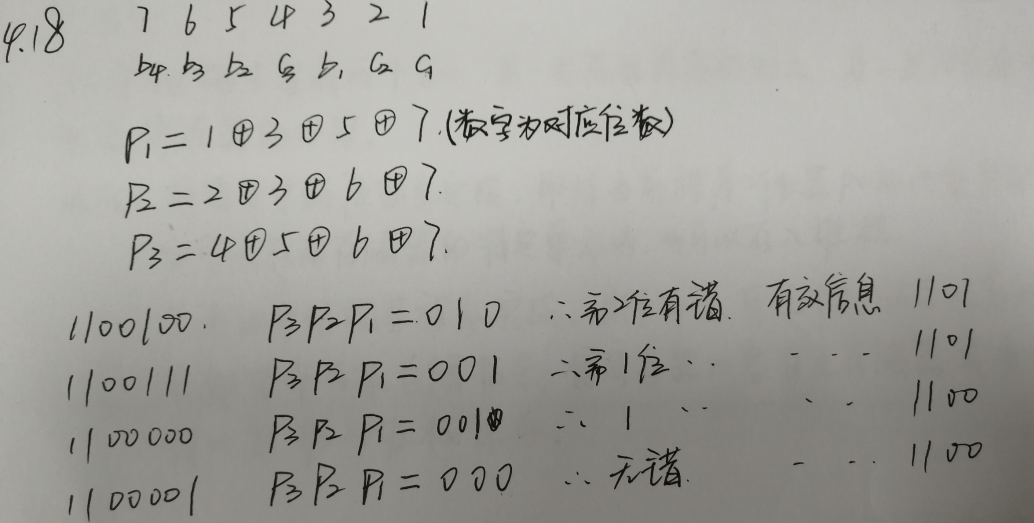 4.18 7 6 5 4 3 2 1
b4. b3 b2 C3 b1 C2 C1
P1 = 1 ⊕ 3 ⊕ 5 ⊕ 7.(数字为对应位数)
P2 = 2 ⊕ 3 ⊕ 6 ⊕ 7.
P3 = 4 ⊕ 5 ⊕ 6 ⊕ 7.
1100100. P3 P2 P1 = 010 ∴ 第2位有错. 有效信息 1101
1100111 P3 P2 P1 = 001 ∴ 第1位 ·· - - - 1101
1100000 P3 P2 P1 = 001 ∴ 1 ·· · · 1100
1100001 P3 P2 P1 = 000 ∴ 无错. - - · 1100